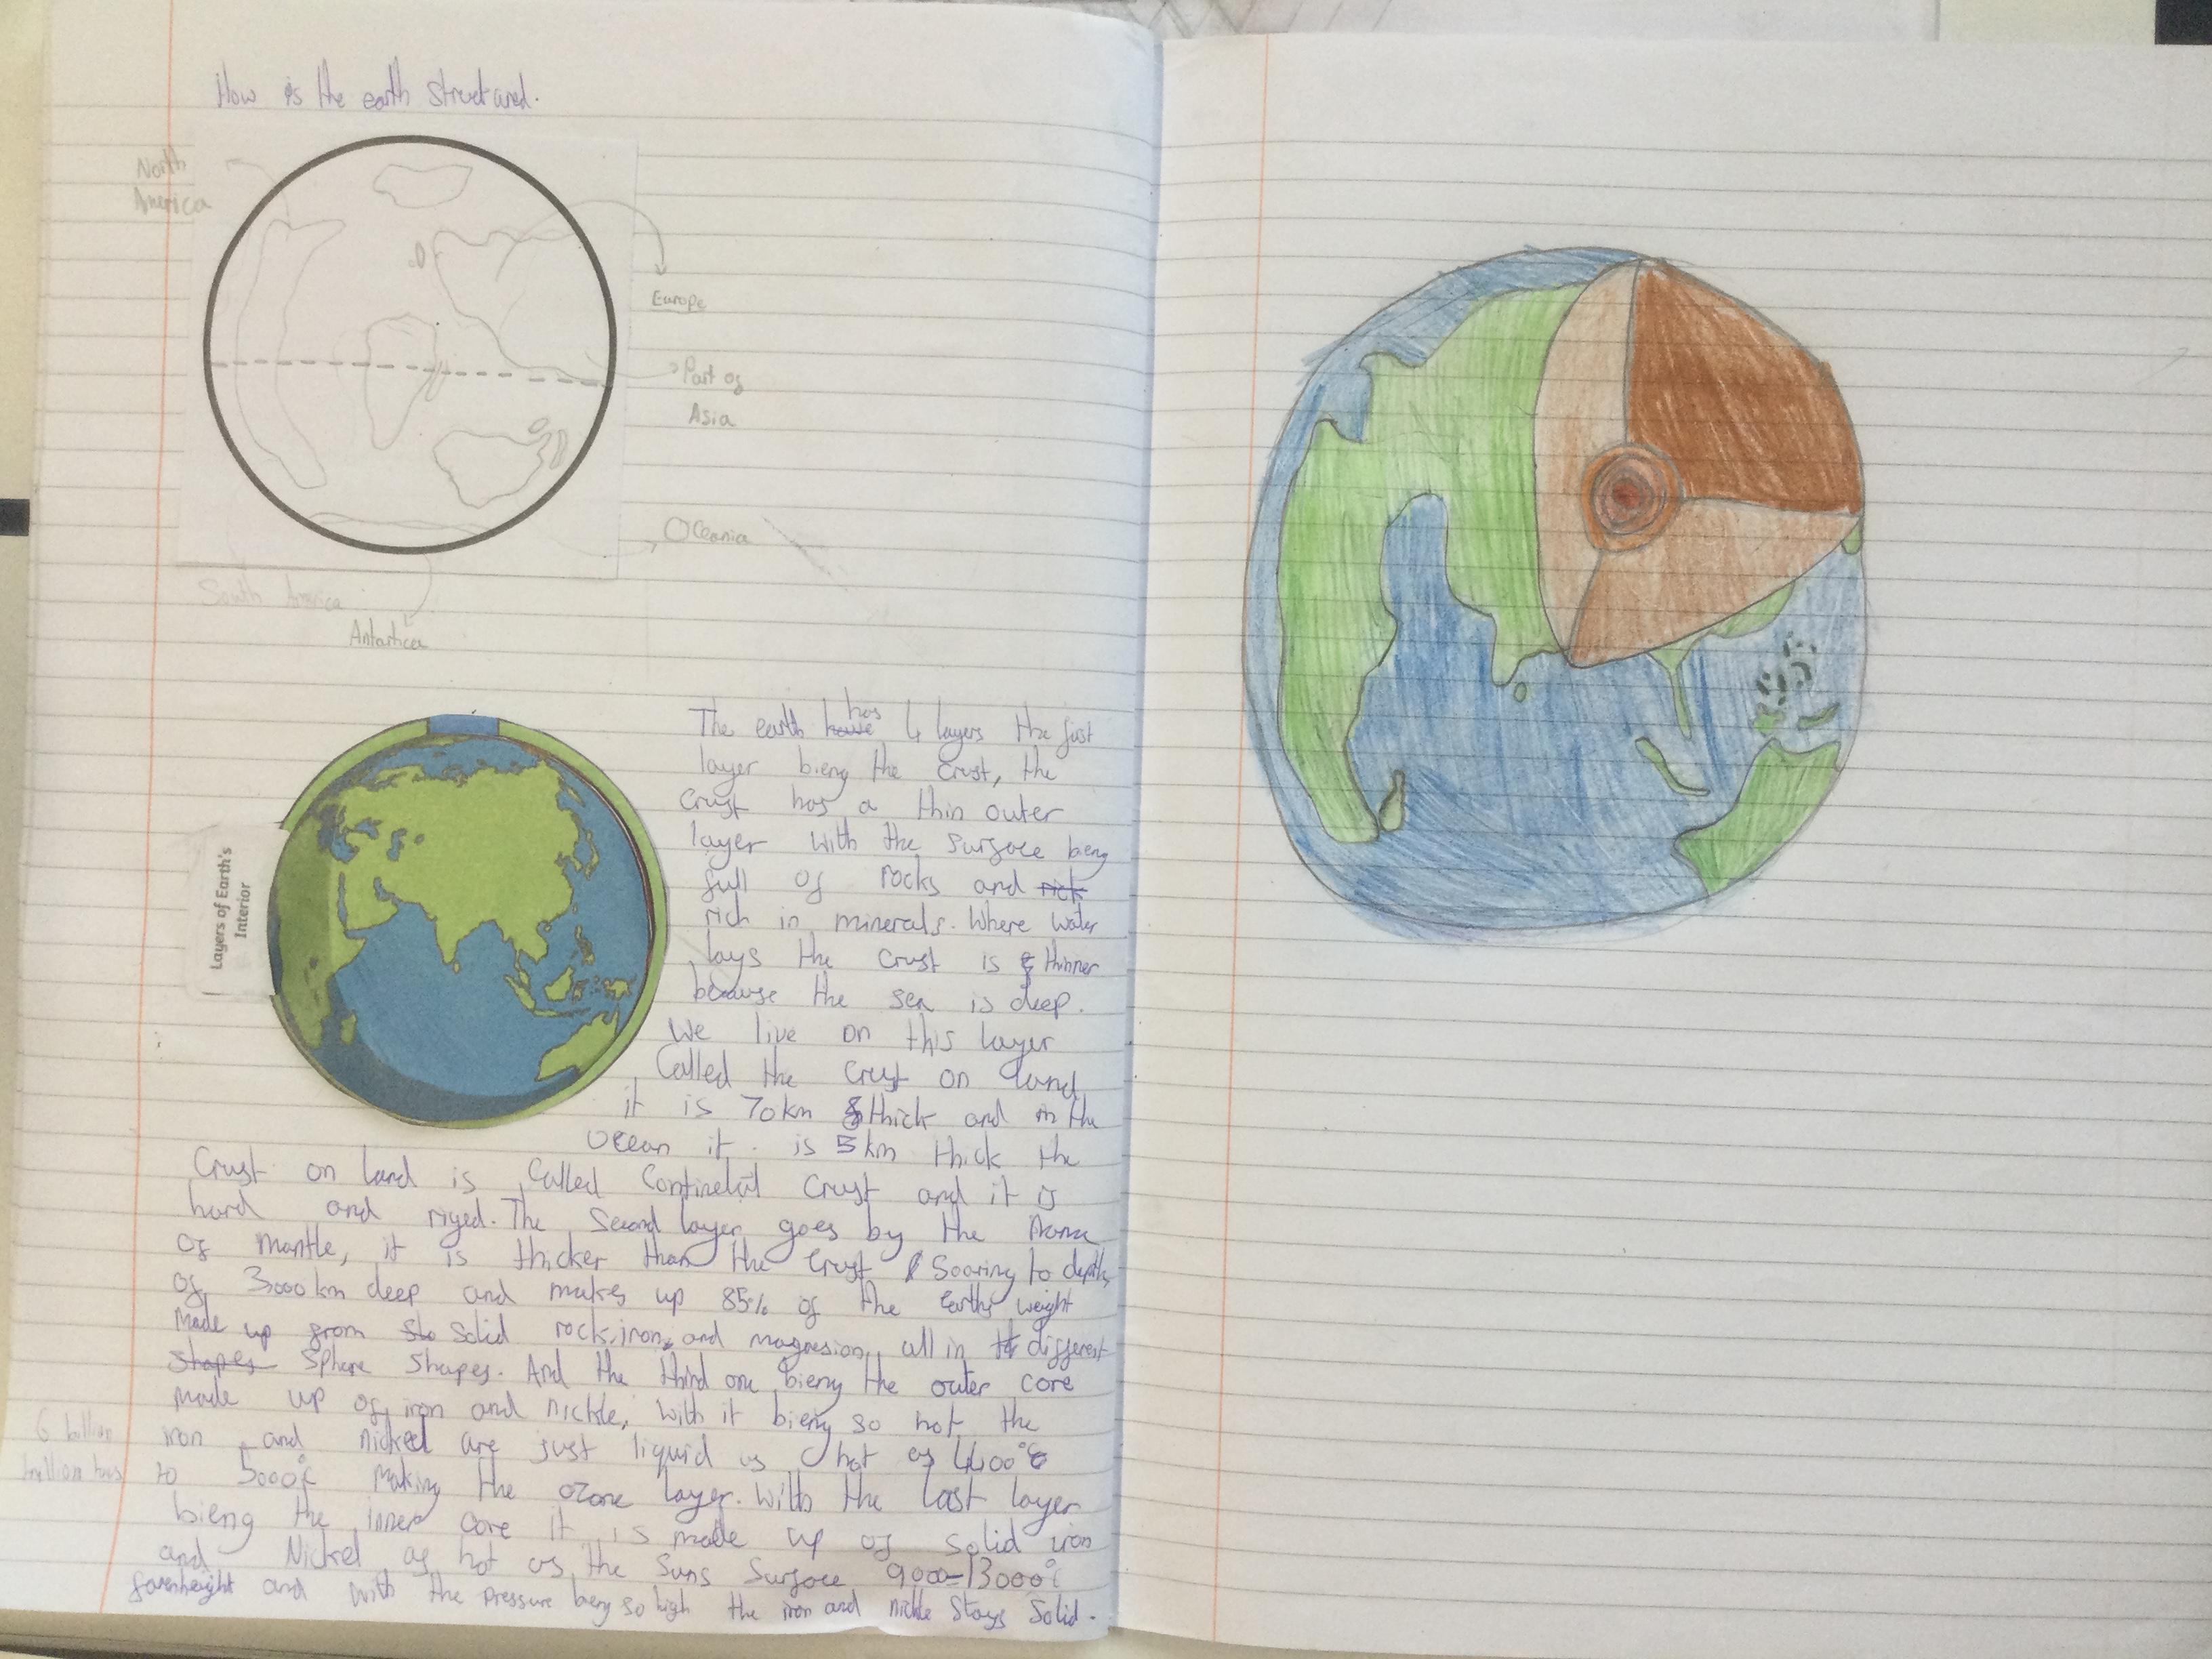 How is the earth structured.
North
America
Europe
Part of
Asia
Oceania
South America
Antartica
Layers of Earth's
Interior
The earth have has 4 layers the fist
layer bieng the crust, the
crust has a thin outer
layer with the surface being
full of rocks and rick
rich in minerals. Where water
lays the crust is thinner
because the sea is deep.
We live on this layer
Called the crust on land
it is 70km thick and in the
Ocean it is 5km thick the
Crust on land is Called Continetal Crust and it is
hard and riged. The Second layer goes by the Name
of Mantle, it is thicker than the Crust Soaring to depths
of 3000km deep and makes up 85% of the earths weight
Made up from Solid rock, iron, and magnesion, all in different
shapes Sphere Shapes. And the third one bieng the outer core
made up of iron and nickle, with it bieng so hot the
iron and nickel are just liquid as hot as 4400°C
to 5000°c Making the ozone layer. With the last layer
bieng the inner core it is made up of solid iron
and Nickel as hot as the Suns Surface 9000-13000°
farenheight and with the pressure being so high the iron and nickle Stays Solid.
6 billion
trillion tons